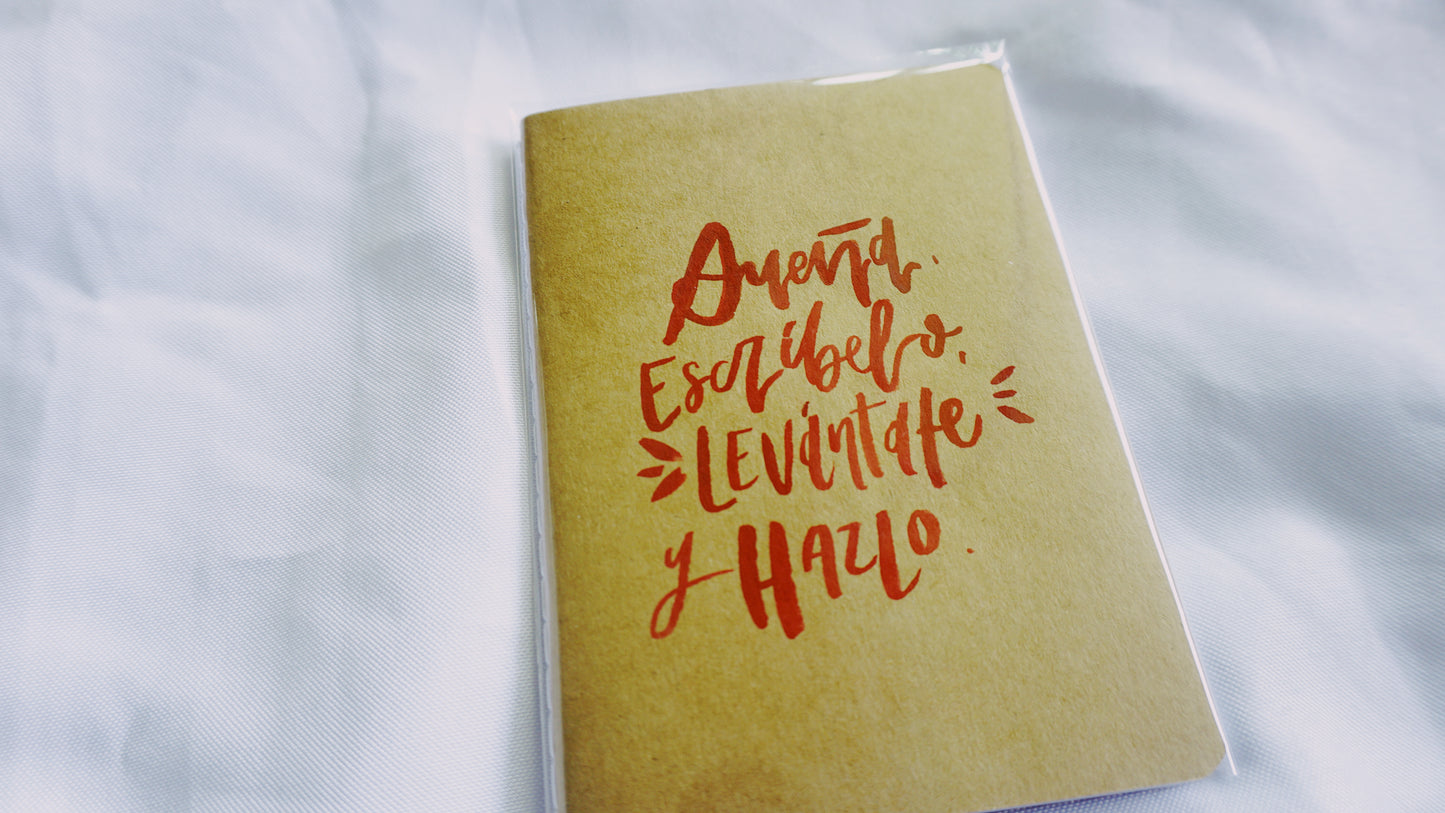 Sueña,
Escríbelo,
LEVántate
y HAZlo.